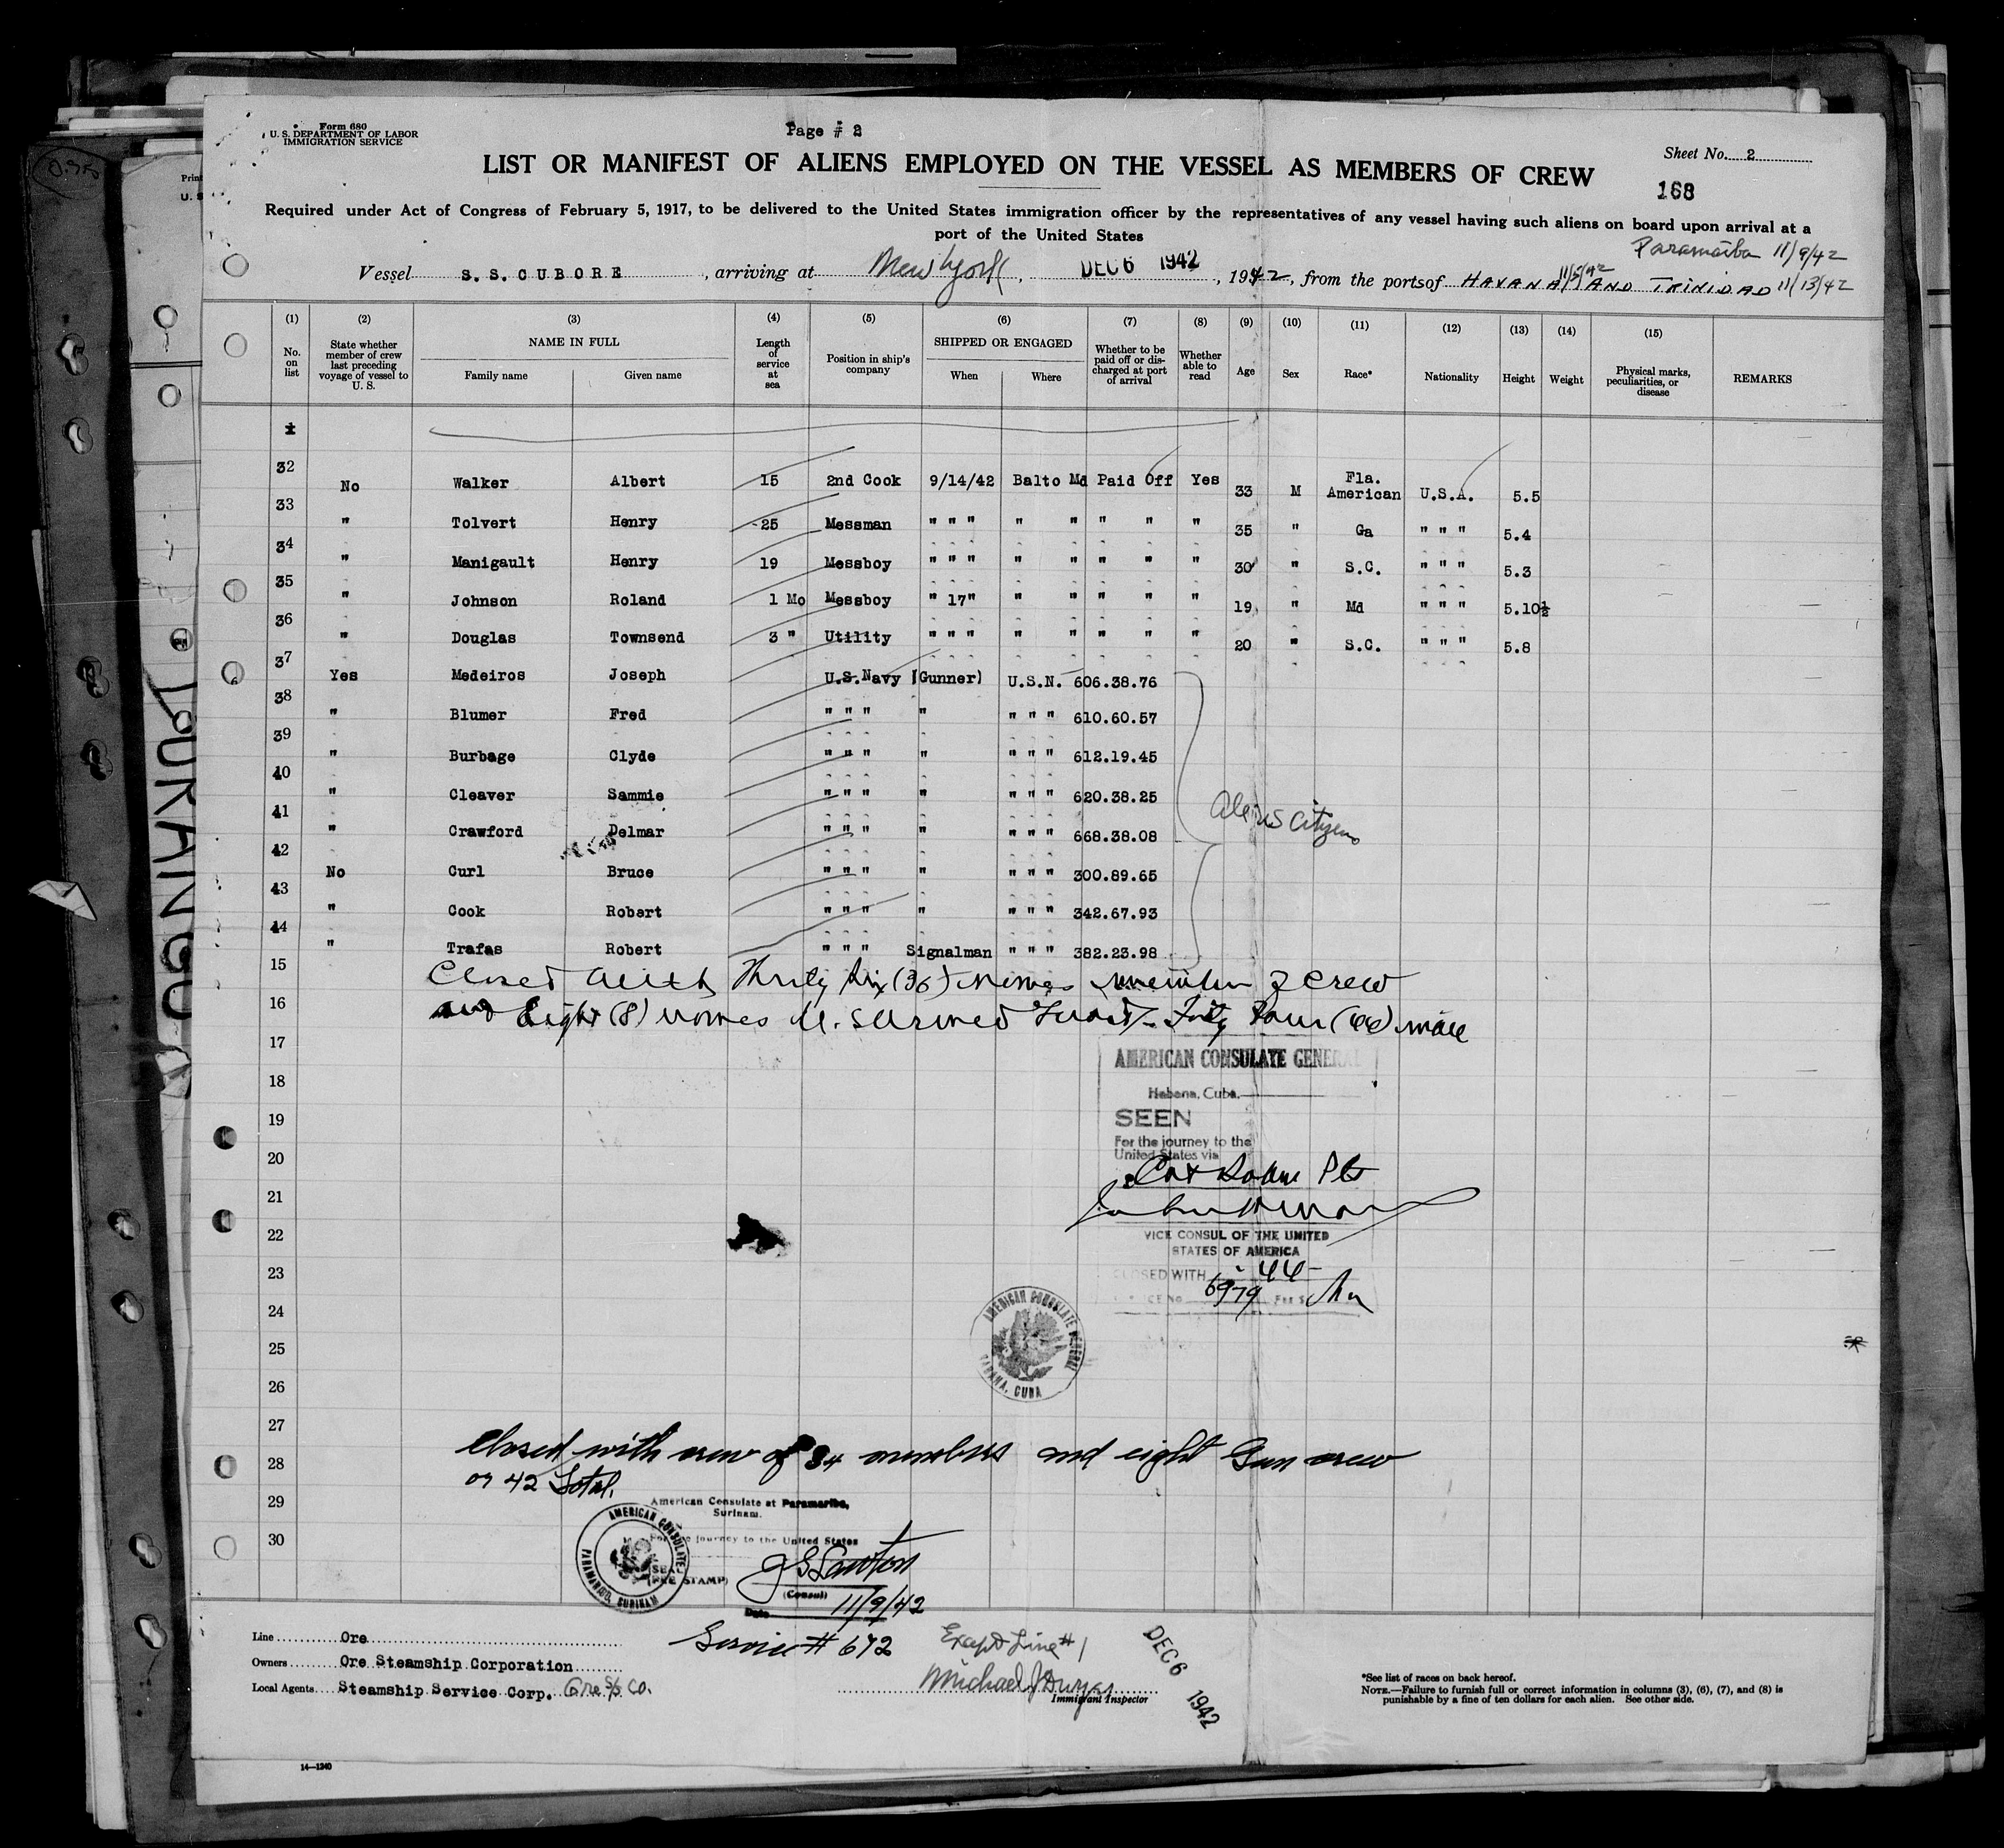 Form 680
U. S. DEPARTMENT OF LABOR
IMMIGRATION SERVICE
Page # 2
Sheet No. 2
LIST OR MANIFEST OF ALIENS EMPLOYED ON THE VESSEL AS MEMBERS OF CREW
168
Required under Act of Congress of February 5, 1917, to be delivered to the United States immigration officer by the representatives of any vessel having such aliens on board upon arrival at a
port of the United States
Paramaiba 11/9/42
Vessel S. S. CUBORE, arriving at New York, DEC 6 1942, 1942, from the ports of HAVANA 11/5/42 AND TRINIDAD 11/13/42
(1) (2) (3) (4) (5) (6) (7) (8) (9) (10) (11) (12) (13) (14) (15)
No. on list State whether member of crew last preceding voyage of vessel to U. S. NAME IN FULL Family name Given name Length of service at sea Position in ship's company SHIPPED OR ENGAGED When Where Whether to be paid off or discharged at port of arrival Whether able to read Age Sex Race* Nationality Height Weight Physical marks, peculiarities, or disease REMARKS
1
32 No Walker Albert 15 2nd Cook 9/14/42 Balto Md Paid Off Yes 33 M Fla. American U.S.A. 5.5
33 " Tolvert Henry 25 Messman " " " " " " " " 35 " Ga " " " 5.4
34 " Manigault Henry 19 Messboy " " " " " " " " 30 " S.C. " " " 5.3
35 " Johnson Roland 1 Mo Messboy " 17" " " " " " 19 " Md " " " 5.10½
36 " Douglas Townsend 3 " Utility " " " " " " " " 20 " S.C. " " " 5.8
37 Yes Medeiros Joseph U.S.Navy (Gunner) U.S.N. 606.38.76
38 " Blumer Fred " " " " " " " 610.60.57
39 " Burbage Clyde " " " " " " " 612.19.45
40 " Cleaver Sammie " " " " " " " 620.38.25
41 " Crawford Delmar " " " " " " " 668.38.08
All US Citizens
42 No Curl Bruce " " " " " " " 300.89.65
43 " Cook Robert " " " " " " " 342.67.93
44 " Trafas Robert " " " Signalman " " " 382.23.98
15 Closed with Thirty Six (36) names member of crew
16 and Eight (8) names U. S armed Guard - Forty Four (44) in all
17
AMERICAN CONSULATE GENERAL
18
Habana, Cuba.
19 SEEN
For the journey to the
United States via
20
21
22
VICE CONSUL OF THE UNITED
STATES OF AMERICA
23
CLOSED WITH 44
6979
24
AMERICAN CONSULATE GENERAL HABANA, CUBA
25
26
27
Closed with crew of 34 members and eight Gun crew
28
or 42 Total.
29
American Consulate at Paramaribo,
Surinam.
30
For the journey to the United States
AMERICAN CONSULATE PARAMARIBO, SURINAM
(SEAL)
(FEE STAMP)
J S Lawton
(Consul)
Date 11/9/42
Service # 672
Except Line # 1
DEC 6 1942
Line Ore
Owners Ore Steamship Corporation
Local Agents Steamship Service Corp. Ore S/S Co.
Michael J Dwyer
Immigrant Inspector
*See list of races on back hereof.
NOTE.—Failure to furnish full or correct information in columns (3), (6), (7), and (8) is
punishable by a fine of ten dollars for each alien. See other side.
14—1240